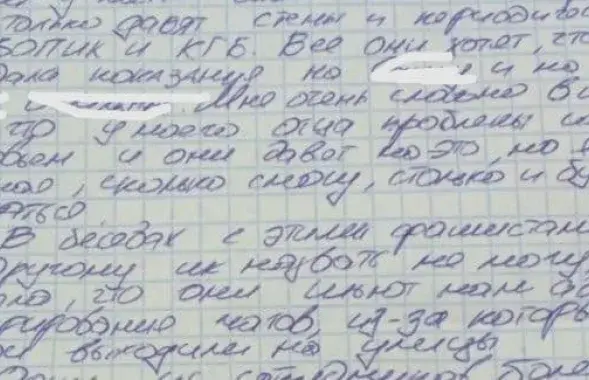 только давят стены и периодичес
БОПИК и КГБ. Все они хотят, что
дала показания на и на
Мне очень сложно в
что у моего отца проблемы
вьем и они давят на это, но я
наю, сколько смогу, столько и бу
аться.
В беседах с этими фашистам
другому их назвать не могу,
ла, что они шьют нам
рирование чатов, из-за которы
и выходили на улицы
сотрудников более